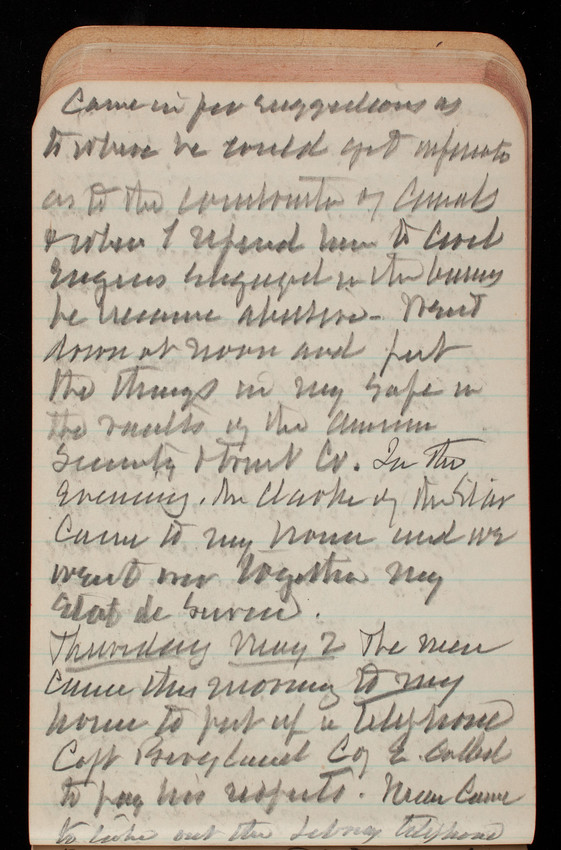 Came in for suggestions as
to where he could get informatn
as to the constructn of Canals
& when I referred him to Civil
Engineers engaged in the business
he became abusive - Went
down at noon and put
the things in my safe in
the vaults of the American
Security & Trust Co. In the
Evening. Mr Clarke of the Star
Came to my house and we
went over together my
Etat de Service.
Thursday May 2 The men
came this morning to my
house to put up a telephone
Capt Co E. called
to pay his respects. Men Came
to take out the telephone